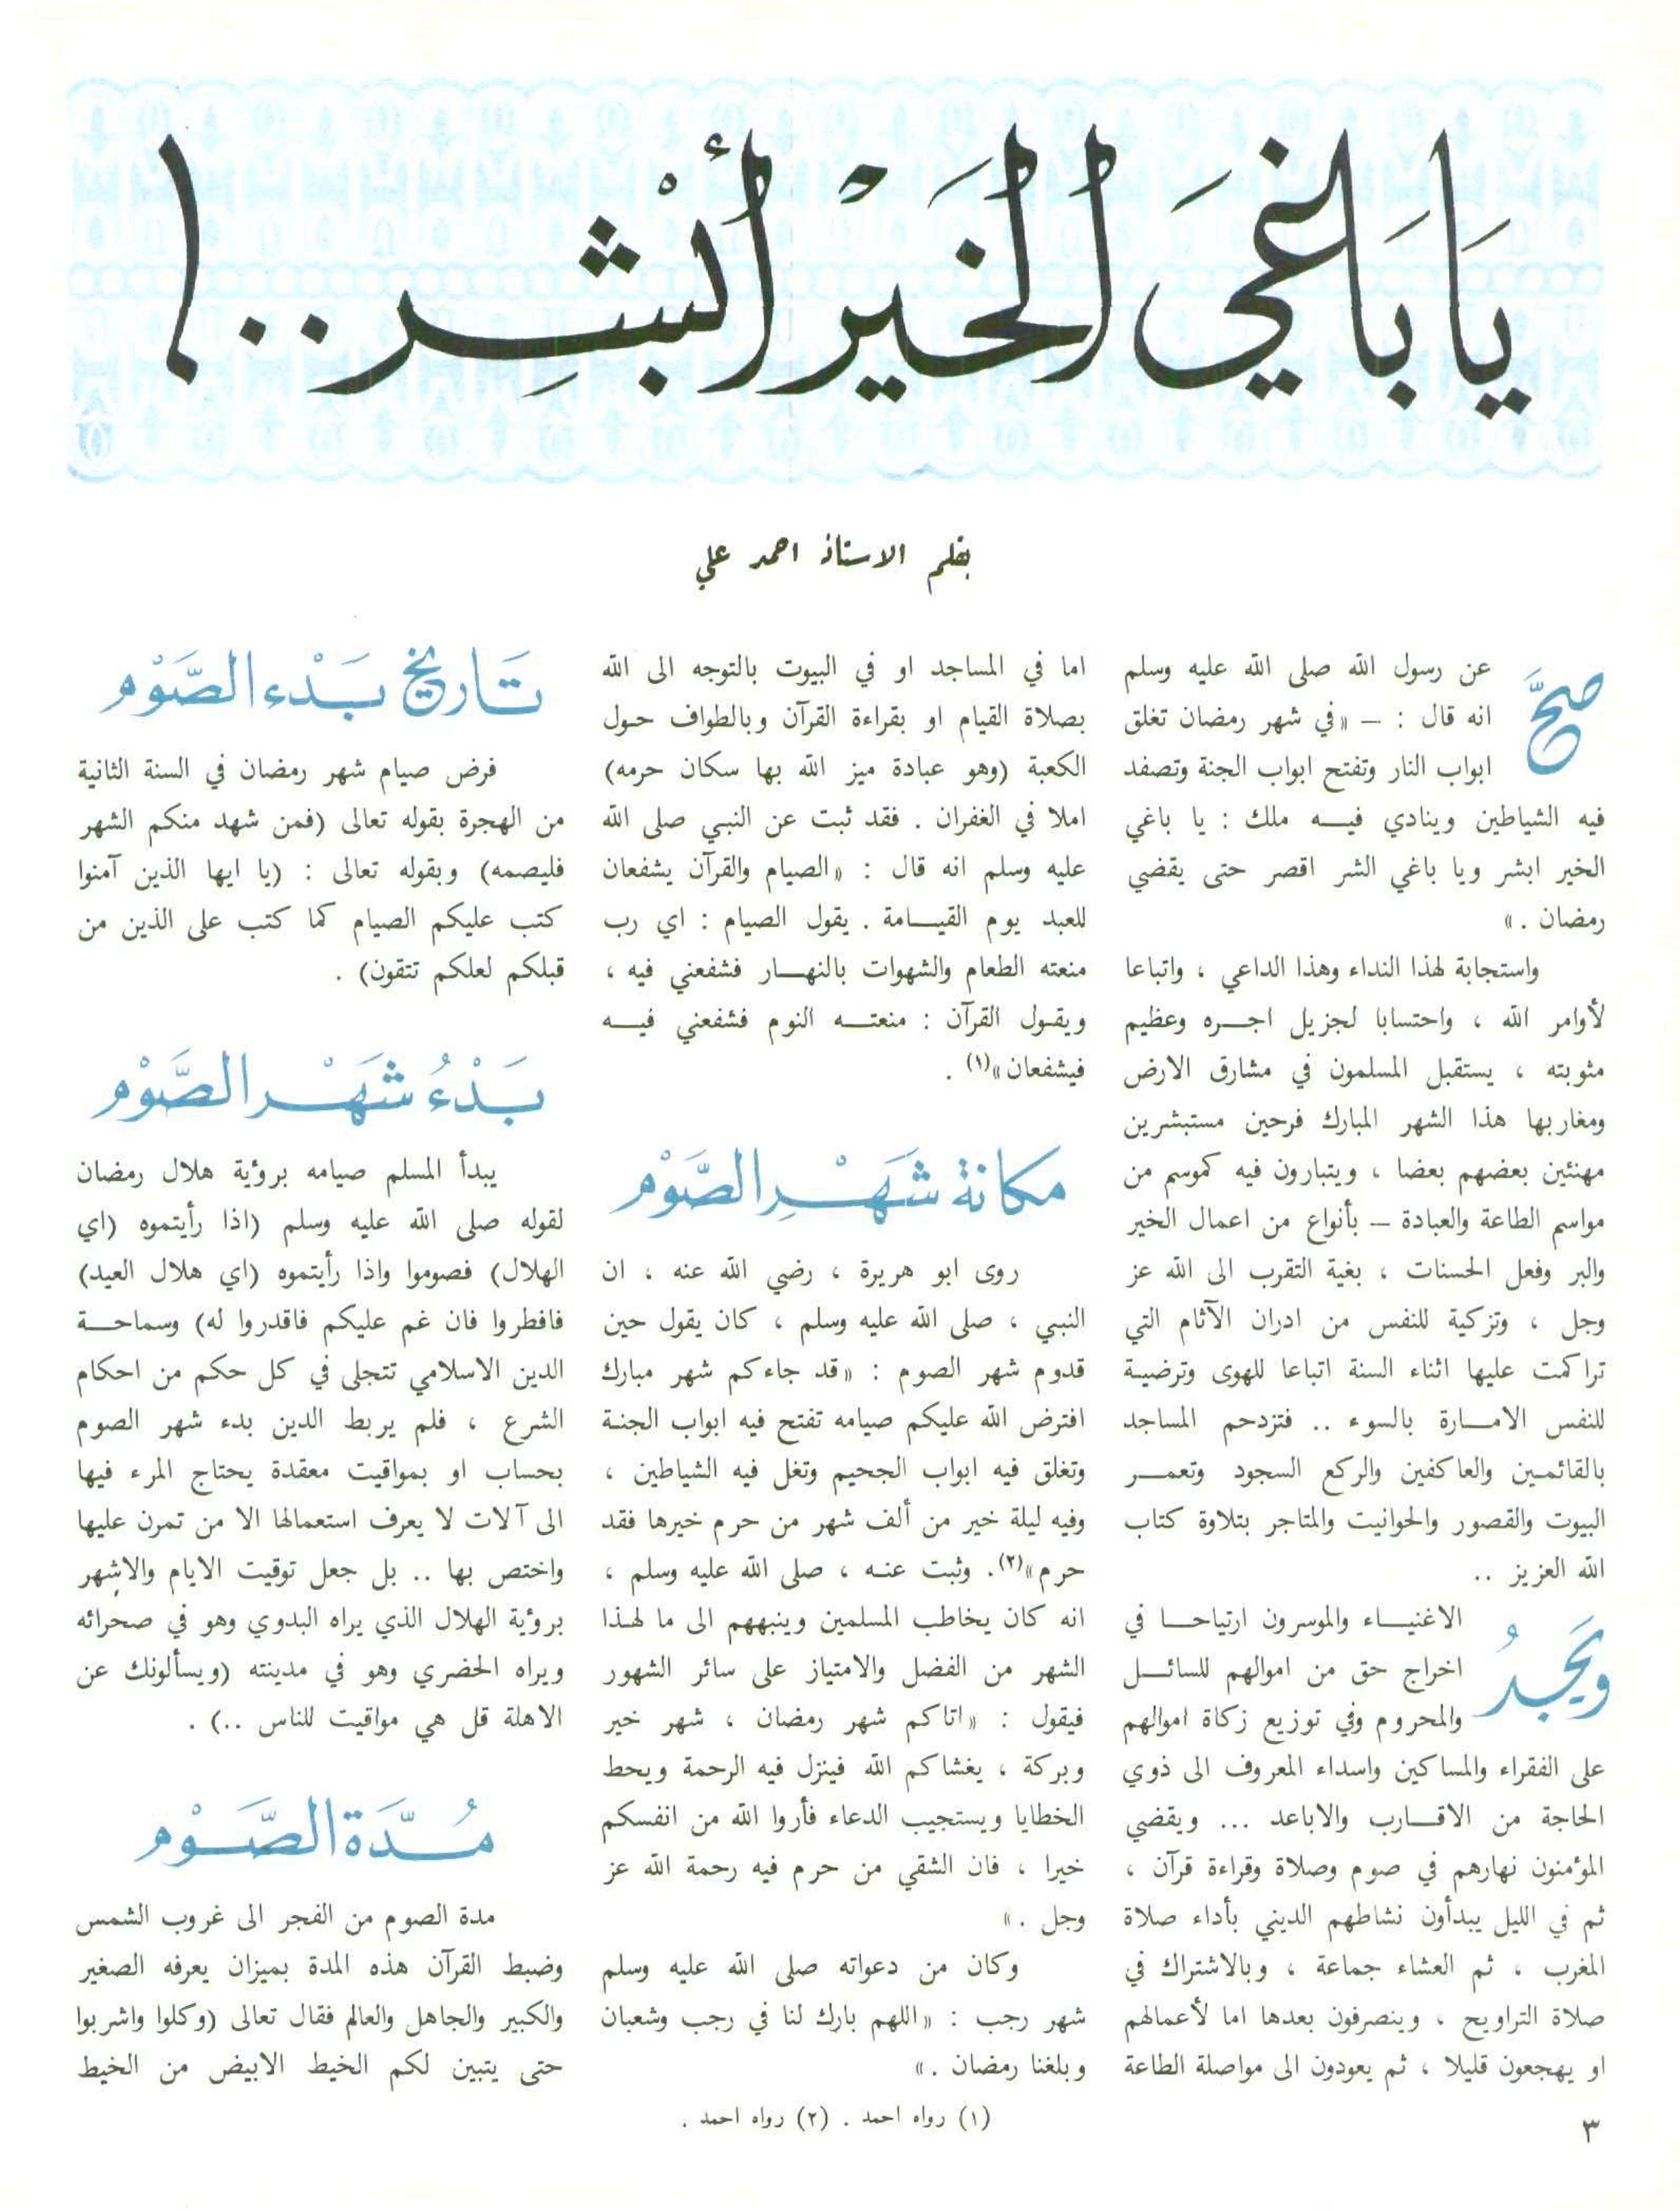 يَا بَاغِيَ الخَيْر أَبْشِر..!
بقلم الاستاذ احمد علي
صحَّ عن رسول الله صلى الله عليه وسلم
انه قال : – «في شهر رمضان تغلق
ابواب النار وتفتح ابواب الجنة وتصفد
فيه الشياطين وينادي فيـــه ملك : يا باغي
الخير ابشر ويا باغي الشر اقصر حتى يقضي
رمضان . »
واستجابة لهذا النداء وهذا الداعي ، واتباعا
لأوامر الله ، واحتسابا لجزيل اجـــره وعظيم
مثوبته ، يستقبل المسلمون في مشارق الارض
ومغاربها هذا الشهر المبارك فرحين مستبشرين
مهنئين بعضهم بعضا ، ويتبارون فيه كموسم من
مواسم الطاعة والعبادة – بأنواع من اعمال الخير
والبر وفعل الحسنات ، بغية التقرب الى الله عز
وجل ، وتزكية للنفس من ادران الآثام التي
تراكمت عليها اثناء السنة اتباعا للهوى وترضيـة
للنفس الامـــارة بالسوء .. فتزدحم المساجد
بالقائمـين والعاكفين والركع السجود وتعمـــر
البيوت والقصور والحوانيت والمتاجر بتلاوة كتاب
الله العزيز ..
وَيَجدُ الاغنيـــاء والموسرون ارتياحـــا في
اخراج حق من اموالهم للسائـــل
والمحروم وفي توزيع زكاة اموالهم
على الفقراء والمساكين واسداء المعروف الى ذوي
الحاجة من الاقـــارب والاباعد ... ويقضي
المؤمنون نهارهم في صوم وصلاة وقراءة قرآن ،
ثم في الليل يبدأون نشاطهم الديني بأداء صلاة
المغرب ، ثم العشاء جماعة ، وبالاشتراك في
صلاة التراويح ، وينصرفون بعدها اما لأعمالهم
او يهجعون قليلا ، ثم يعودون الى مواصلة الطاعة
اما في المساجد او في البيوت بالتوجه الى الله
بصلاة القيام او بقراءة القرآن وبالطواف حـول
الكعبة (وهو عبادة ميز الله بها سكان حرمه)
املا في الغفران . فقد ثبت عن النبـي صلى الله
عليه وسلم انه قال : «الصيام والقرآن يشفعان
للعبد يوم القيـــامة . يقول الصيام : اي رب
منعته الطعام والشهوات بالنهـــار فشفعني فيه ،
ويقـول القرآن : منعتـــه النوم فشفعني فيـــه
فيشفعان»(١) .
مكانة شَهْـــرِ الصَّوْم
روى ابو هريرة ، رضي الله عنه ، ان
النبـي ، صلى الله عليه وسلم ، كان يقول حين
قدوم شهر الصوم : «قد جاءكم شهر مبارك
افترض الله عليكم صيامه تفتح فيه ابواب الجنـة
وتغلق فيه ابواب الجحيم وتغل فيه الشياطين ،
وفيه ليلة خير من ألف شهر من حرم خيرها فقد
حرم»(٢). وثبت عنـه ، صلى الله عليه وسلم ،
انه كان يخاطب المسلمين وينبههم الى ما لهـذا
الشهر من الفضل والامتياز على سائر الشهور
فيقول : «اتاكم شهر رمضان ، شهر خير
وبركة ، يغشاكم الله فينزل فيه الرحمة ويحط
الخطايا ويستجيب الدعاء فأروا الله من انفسكم
خيرا ، فان الشقي من حرم فيه رحمة الله عز
وجل . »
وكان من دعواته صلى الله عليه وسلم
شهر رجب : «اللهم بارك لنا في رجب وشعبان
وبلغنا رمضان . »
تَاريخ بَدْء الصَّوْم
فرض صيام شهر رمضان في السنة الثانية
من الهجرة بقوله تعالى (فمن شهد منكم الشهر
فليصمه) وبقوله تعالى : (يا ايها الذين آمنوا
كتب عليكم الصيام كما كتب على الذين من
قبلكم لعلكم تتقون) .
بَدْءُ شَهْـــر الصَّوْم
يبدأ المسلم صيامه برؤية هلال رمضان
لقوله صلى الله عليه وسلم (اذا رأيتموه (اي
الهلال) فصوموا واذا رأيتموه (اي هلال العيد)
فافطروا فان غم عليكم فاقدروا له) وسماحـــة
الدين الاسلامي تتجلى في كل حكم من احكام
الشرع ، فلم يربط الدين بدء شهر الصوم
بحساب او بمواقيت معقدة يحتاج المرء فيها
الى آلات لا يعرف استعمالها الا من تمرن عليها
واختص بها .. بل جعل توقيت الايام والاشهر
برؤية الهلال الذي يراه البدوي وهو في صحرائه
ويراه الحضري وهو في مدينته (ويسألونك عن
الاهلة قل هي مواقيت للناس ..) .
مُـــدَّة الصَّـــوْم
مدة الصوم من الفجر الى غروب الشمس
وضبط القرآن هذه المدة بميزان يعرفه الصغير
والكبير والجاهل والعالم فقال تعالى (وكلوا واشربوا
حتى يتبين لكم الخيط الابيض من الخيط
(١) رواه احمد . (٢) رواه احمد .
٣